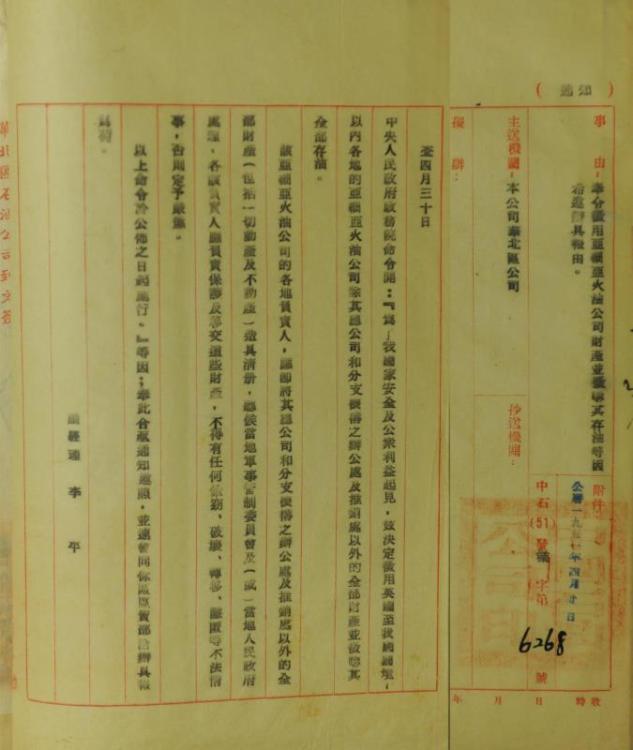 (通知)
事由：奉令徵用亞細亞火油公司財產並徵購其存油等因
希遵辦具報由。
主送機關：本公司華北區公司
抄送機關：
擬辦：
附件
公曆一九五一年四月卅日
中石(51)發 字第6268號
收 時 日 月 年
查四月三十日
中央人民政府政務院命令開：『為了我國家安全及公衆利益起見，茲決定徵用英國在我國國境
以內各地的亞細亞火油公司除其總公司和分支機構之辦公處及推銷處以外的全部財產並徵購其
全部存油。
該亞細亞火油公司的各地負責人，應即將其總公司和分支機構之辦公處及推銷處以外的全
部財產(包括一切動產及不動產)造具清册，聽候當地軍事管制委員會及(或)當地人民政府
處理，各該負責人應負責保護及移交這些財產，不得有任何偷竊、破壞、轉移、隱匿等不法情
事，否則定予嚴懲。
以上命令於公佈之日起施行。』等因；奉此合亟通知遵照，並速會同你區區貿部洽辦具報
為荷。
總經理 李 平
華北區石油公司到文簽